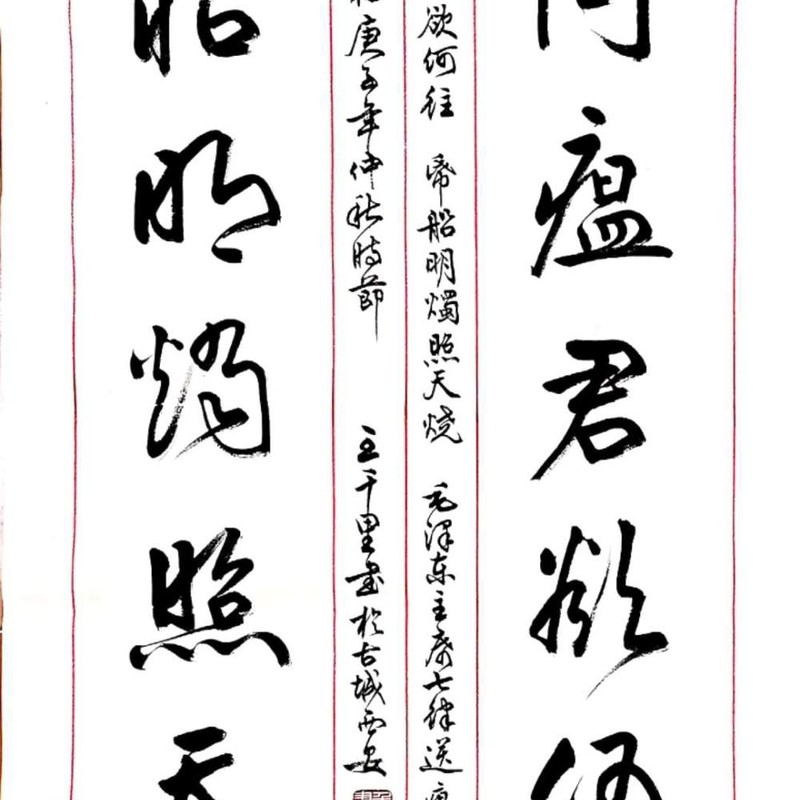 问瘟君欲何
欲何往 帋船明燭照天烧 毛澤东主席七律送瘟
庚子年仲秋時節 王千里书於古城西安
船明燭照天